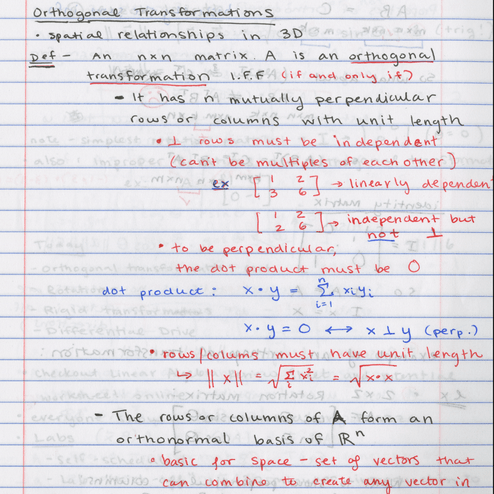 Orthogonal Transformations
• spatial relationships in 3D
Def - An nxn matrix A is an orthogonal
transformation I.F.F (if and only if)
- It has n mutually perpendicular
rows or columns with unit length
• ⊥ rows must be independent
(can't be multiples of each other)
ex [1 2; 3 6] → linearly dependent
[1 2; 2 6] → independent but
not ⊥
• to be perpendicular,
the dot product must be 0
dot product: x • y = Σ_{i=1}^{n} x_i y_i
x • y = 0 ↔ x ⊥ y (perp.)
• rows/colums must have unit length
↳ ||x|| = √(Σ_i x_i²) = √(x • x)
- The rows or columns of A form an
orthonormal basis of ℝⁿ
• basic for space - set of vectors that
can combine to create any vector in